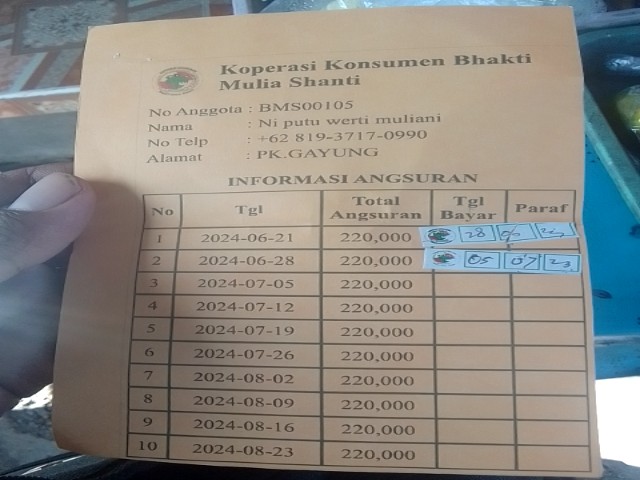 Koperasi Konsumen Bhakti
Mulia Shanti
No Anggota : BMS00105
Nama : Ni putu werti muliani
No Telp : +62 819-3717-0990
Alamat : PK.GAYUNG
INFORMASI ANGSURAN
No Tgl Total Angsuran Tgl Bayar Paraf
1 2024-06-21 220,000 28
2 2024-06-28 220,000 05 07
3 2024-07-05 220,000
4 2024-07-12 220,000
5 2024-07-19 220,000
6 2024-07-26 220,000
7 2024-08-02 220,000
8 2024-08-09 220,000
9 2024-08-16 220,000
10 2024-08-23 220,000